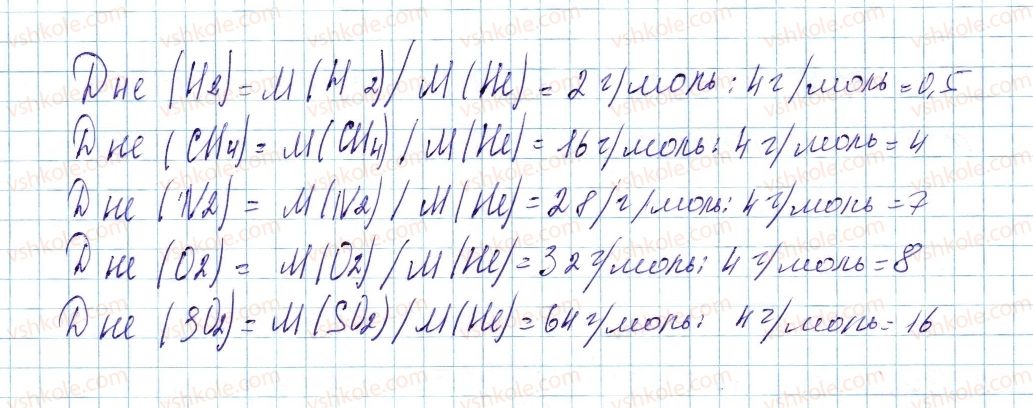 D не (H2) = M (H2) / M (He) = 2 г/моль : 4 г/моль = 0,5
D не (CH4) = M (CH4) / M (He) = 16 г/моль : 4 г/моль = 4
D не (N2) = M (N2) / M (He) = 28 / г/моль : 4 г/моль = 7
D не (O2) = M (O2) / M (He) = 32 г/моль : 4 г/моль = 8
D не (SO2) = M (SO2) / M (He) = 64 г/моль : 4 г/моль = 16